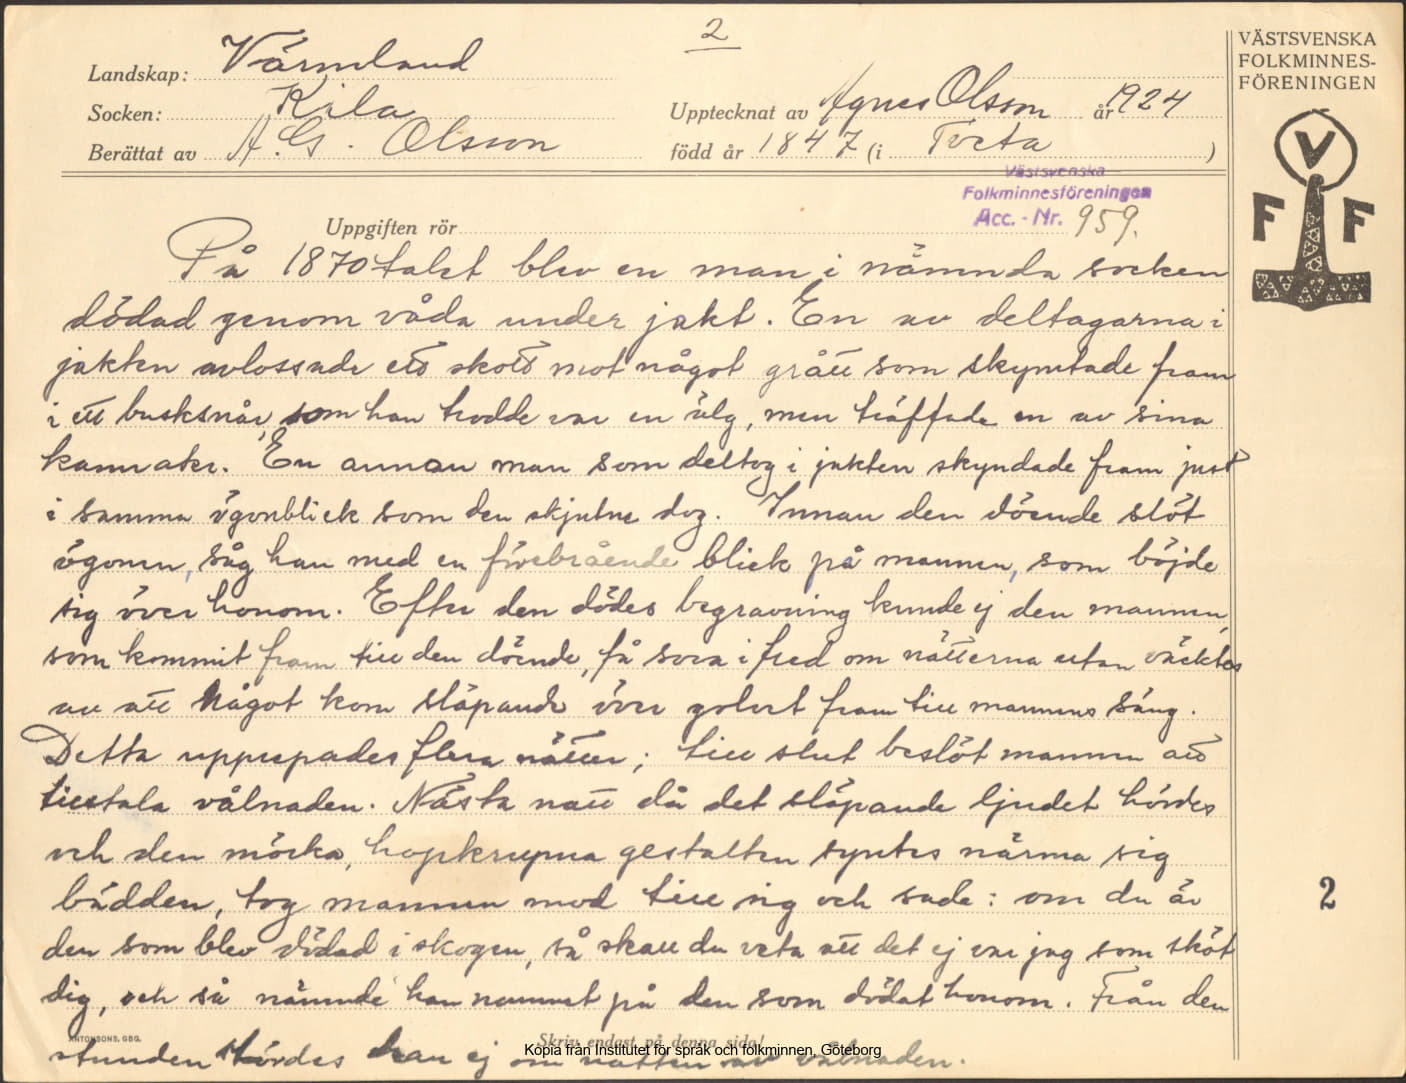 2
VÄSTSVENSKA
FOLKMINNES-
FÖRENINGEN
V
F F
Landskap: Värmland
Socken: Kila
Upptecknat av Agnes Olsson år 1924
Berättat av A.G. Olsson
född år 1847 (i Tveta )
Västsvenska
Folkminnesföreningen
Acc. - Nr. 959.
Uppgiften rör
På 1870 talet blev en man i nämnda socken
dödad genom våda under jakt. En av deltagarna i
jakten avlossade ett skott mot något grått som skymtade fram
i ett busksnår, som han trodde var en älg, men träffade en av sina
kamrater. En annan man som deltog i jakten skyndade fram just
i samma ögonblick som den skjutne dog. Innan den döende slöt
ögonen, såg han med en förebrående blick på mannen, som böjde
sig över honom. Efter den dödes begravning kunde ej den mannen,
som kommit fram till den döende, få sova i fred om nätterna utan väcktes
av att något kom släpande över golvet fram till mannens säng.
Detta upprepades flera nätter; till slut beslöt mannen att
tilltala vålnaden. Nästa natt då det släpande ljudet hördes
och den mörka, hopkrupna gestalten syntes närma sig
bädden, tog mannen mod till sig och sade: om du är
den som blev dödad i skogen, så skall du veta att det ej var jag som sköt
dig, och så nämnde han namnet på den som dödat honom. Från den
stunden stördes han ej om natten av vålnaden.
ANTONSONS. GBG.
Skriv endast på denna sida!
Kopia från Institutet för språk och folkminnen, Göteborg
2